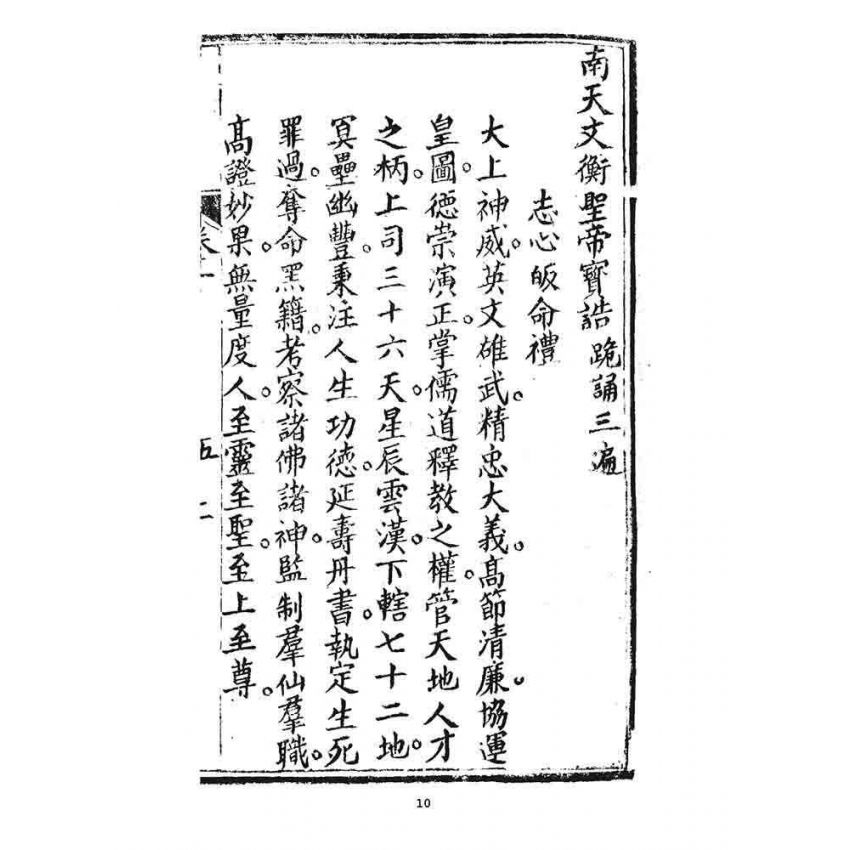 南天文衡聖帝寶誥 跪誦三遍
志心皈命禮
大上神威。英文雄武。精忠大義。高節清廉。協運
皇圖。德崇演正。掌儒道釋教之權。管天地人才
之柄。上司三十六天。星辰雲漢。下轄七十二地。
冥壘幽豐。秉注人生功德。延壽丹書。執定生死
罪過。奪命黑籍。考察諸佛諸神。監制羣仙羣職。
高證妙果。無量度人。至靈至聖。至上至尊。
10